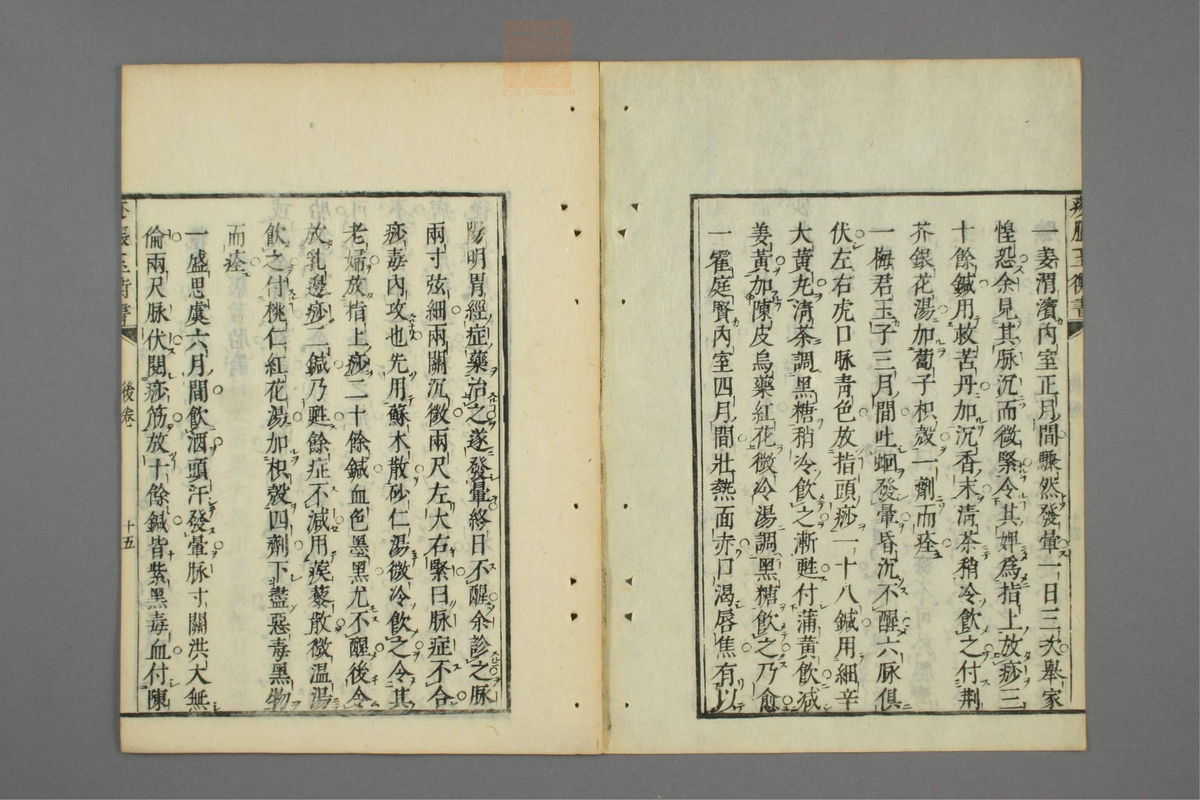 一姜渭濱內室正月間驟然發暈一日三次舉家
惶恐余見其脉沉而微緊冷其婢爲指上放痧三
十餘鍼用救苦丹加沉香末清茶稍冷飲之付荆
芥銀花湯加蔔子枳殼一劑而痊
一梅君玉子三月間吐蛔發暈昏沉不醒六脉俱
伏左右虎口脉青色放指頭痧一十八鍼用細辛
大黃丸清茶調黑糖稍冷飲之漸甦付蒲黃飲减
姜黃加陳皮烏藥紅花微冷湯調黑糖飲之乃愈
一霍庭賢內室四月間壯熱面赤口渴唇焦有以
陽明胃經症藥治之遂發暈終日不醒余診之脉
兩寸弦細兩關沉微兩尺左大右緊曰脉症不合
痧毒內攻也先用蘇木散砂仁湯微冷飲之令其
老婦放指上痧二十餘鍼血色墨黑尤不醒後令
放乳邊痧二鍼乃甦餘症不减用蒺藜散微温湯
飲之付桃仁紅花湯加枳殼四劑下盡惡毒黑物
而痊
一盛思虞六月間飲酒頭汗發暈脉寸關洪大無
倫兩尺脉伏閱痧筋放十餘鍼皆紫黑毒血付陳
後卷
十五
zysj.com.cn